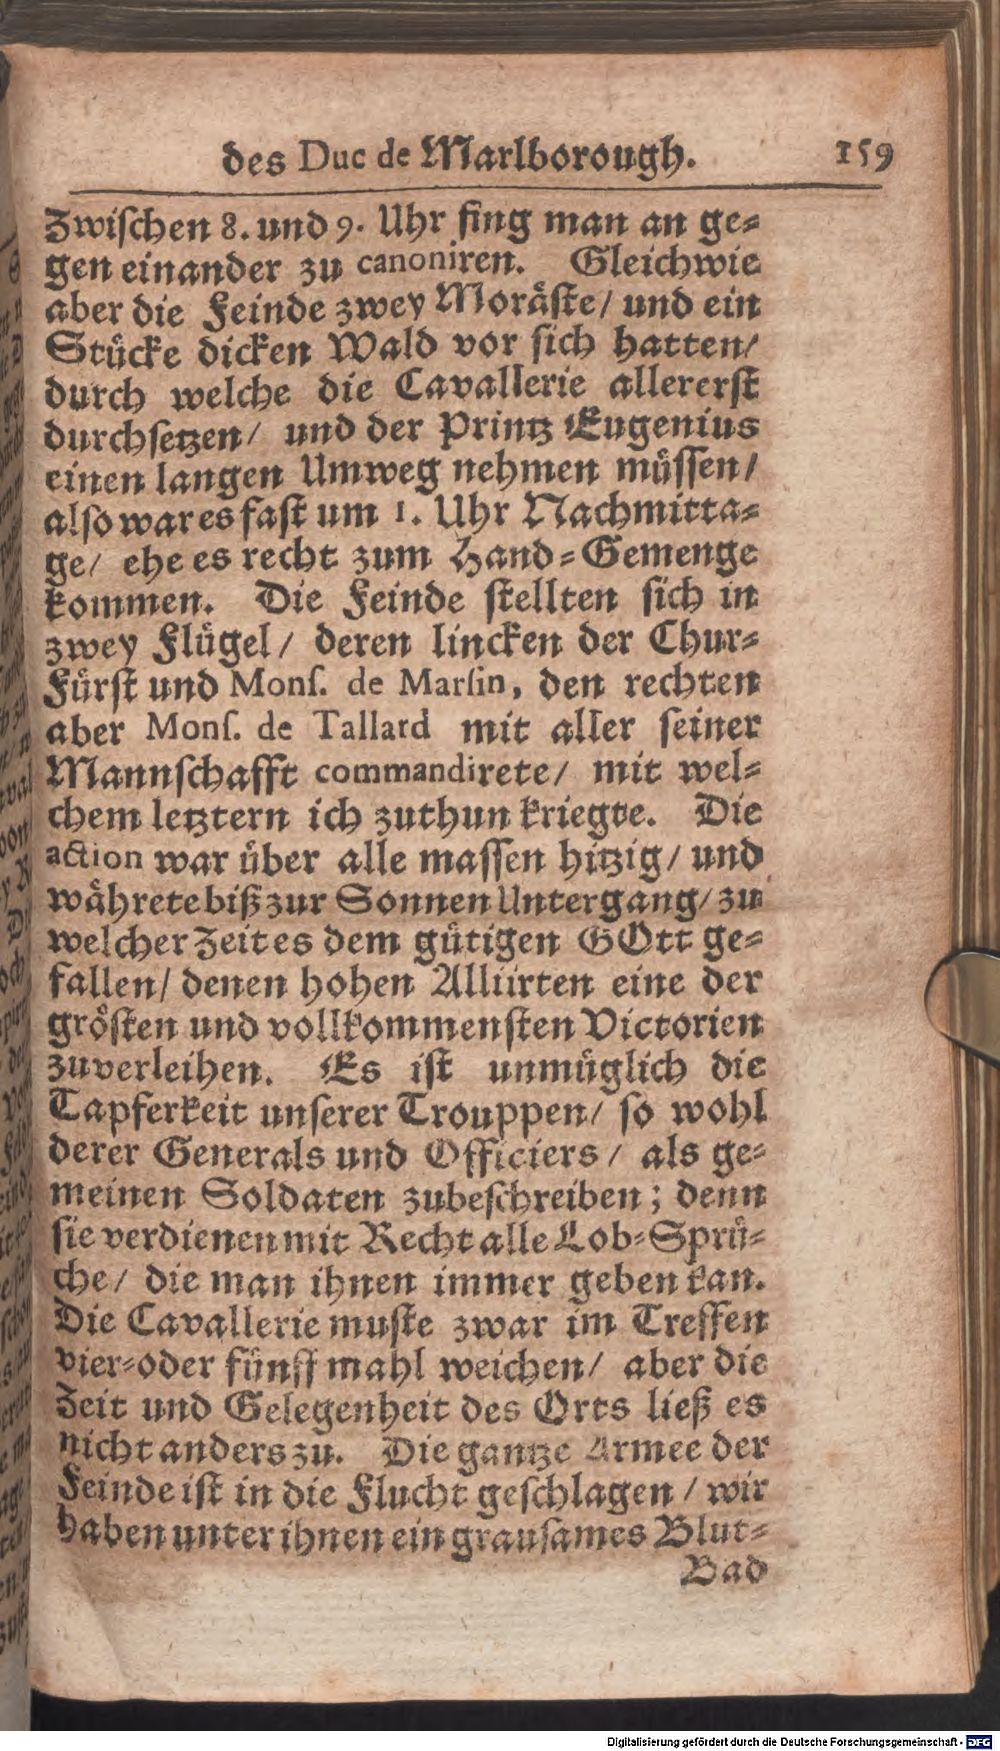 des Duc de Marlborough. 159
Zwischen 8. und 9. Uhr fing man an ge-
gen einander zu canoniren. Gleichwie
aber die Feinde zwey Moräste/ und ein
Stücke dicken Wald vor sich hatten/
durch welche die Cavallerie allererst
durchsetzen/ und der Printz Eugenius
einen langen Umweg nehmen müssen/
also war es fast um 1. Uhr Nachmitta-
ge/ ehe es recht zum Hand-Gemenge
kommen. Die Feinde stellten sich in
zwey Flügel/ deren lincken der Chur-
Fürst und Monſ. de Marſin, den rechten
aber Monſ. de Tallard mit aller seiner
Mannschafft commandirete/ mit wel-
chem letztern ich zuthun kriegte. Die
action war über alle massen hitzig/ und
währete biß zur Sonnen Untergang/ zu
welcher Zeit es dem gütigen GOtt ge-
fallen/ denen hohen Alliirten eine der
grösten und vollkommensten Victorien
zuverleihen. Es ist unmüglich die
Tapferkeit unserer Trouppen/ so wohl
derer Generals und Officiers/ als ge-
meinen Soldaten zubeschreiben; denn
sie verdienen mit Recht alle Lob-Sprü-
che/ die man ihnen immer geben kan.
Die Cavallerie muste zwar im Treffen
vier-oder fünff mahl weichen/ aber die
Zeit und Gelegenheit des Orts ließ es
nicht anders zu. Die gantze Armee der
Feinde ist in die Flucht geschlagen/ wir
haben unter ihnen ein grausames Blut-
Bad
Digitalisierung gefördert durch die Deutsche Forschungsgemeinschaft - DFG